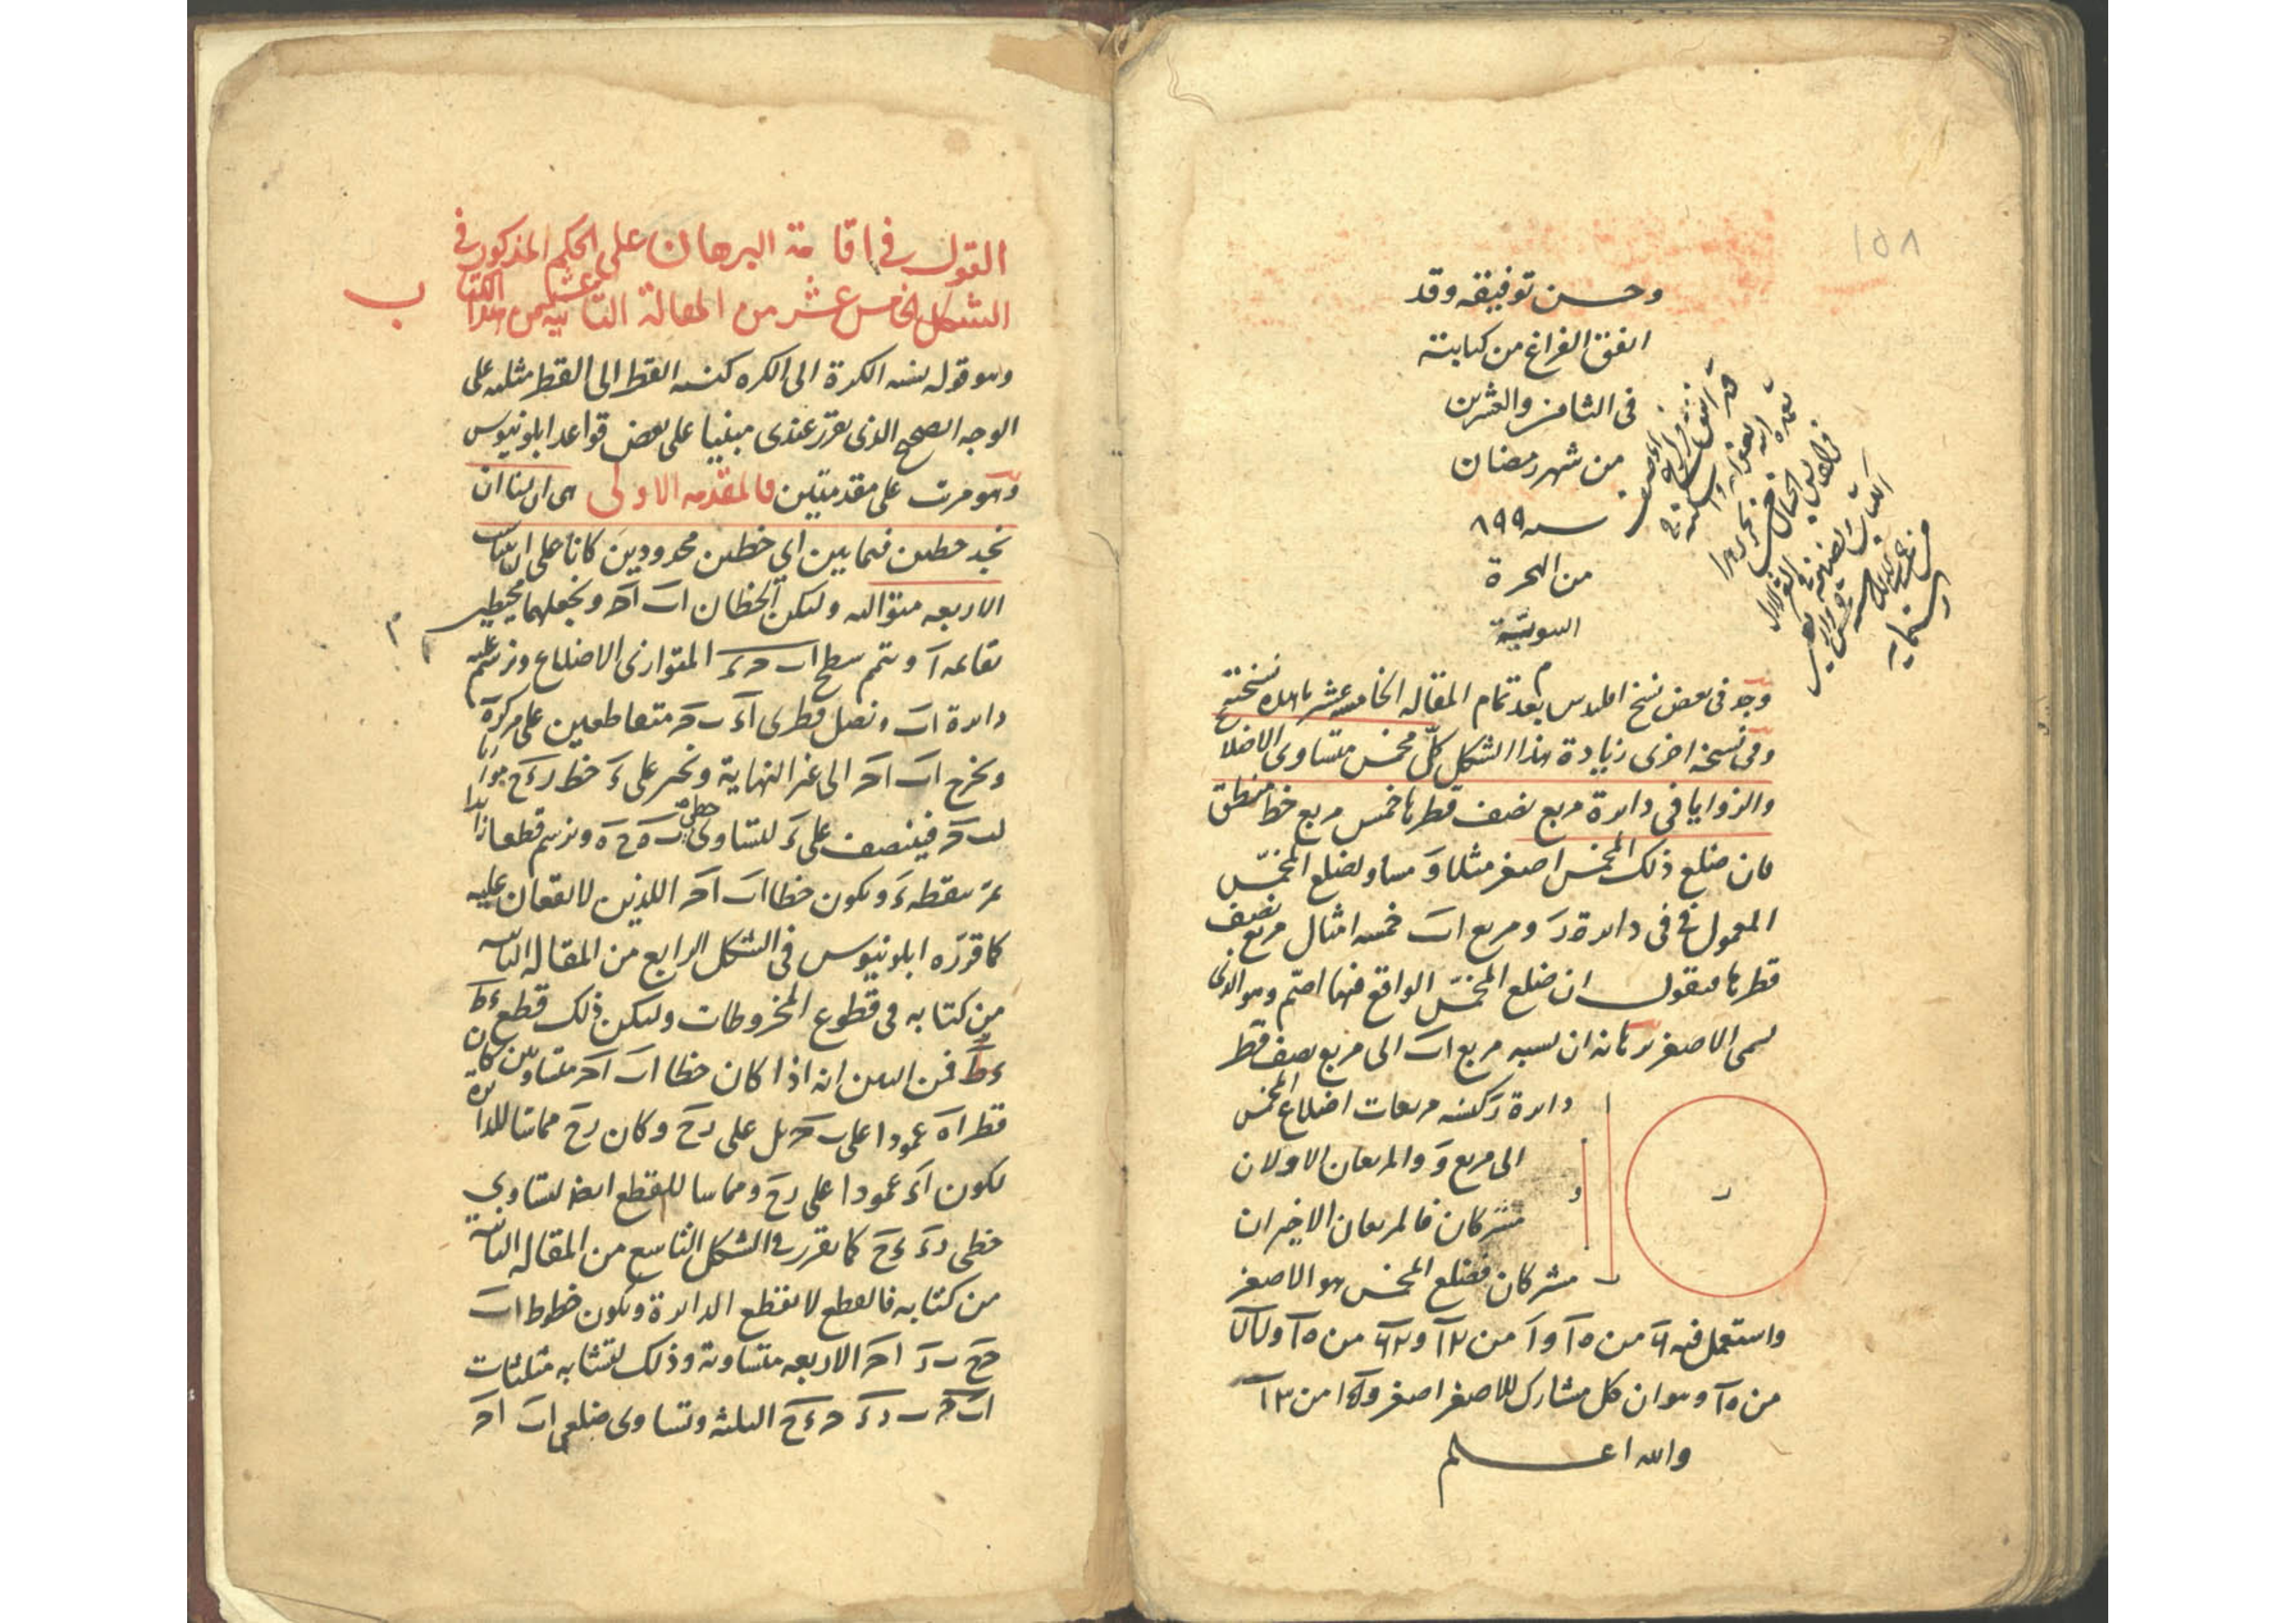 ١٥٨
وحسن توفيقه وقد
اتفق الفراغ من كتابته
فى الثامن والعشرين
من شهر رمضان
سنه ٨٩٩
من الهجرة
النبويّة
وجد فى بعض نسخ اقليدس بعد تمام المقاله الخامسه عشر ما هذه نسخته
وفى نسخه اخرى زيادة هذا الشكل كلّ مخمس متساوى الاضلا
والزوايا فى دائرة مربع نصف قطرها خمس مربع خط منطق
فان ضلع ذلك المخمس اصغر مثلا وَ مساو لضلع المخمّس
المعمول فى دائرة رَ ومربع اب خمسه امثال مربع نصف
قطرها فنقول ان ضلع المخمّس الواقع فيها اصمّ وهو الذى
يسمى الاصغر برهانه ان نسبه مربع اب الى مربع نصف قطر
دائرة ر كنسبه مربعات اضلاع المخمس
الى مربع وَ والمربعان الاولان
مشتركان فالمربعان الاخيران
مشتركان فضلع المخمس هو الاصغر
واستعمل فيه
من وهو ان كل مشارك للاصغر اصغر من
والله اعلم
ر
و
القول فى اقامة البرهان على الحكم المذكور فى
الشكل الخامس عشر من المقالة الثانيه عشر من هذا الكتا
ب
وهو قوله نسبه الكرة الى الكره كنسبه القطر الى القطر مثلثه على
الوجه الصحيح الذى تقرر عندى مبنيا على بعض قواعد ابلونيوس
وهو مرتب على مقدمتين فالمقدمه الاولى هى ان لنا ان
نجد خطين فيما بين اى خطين محدودين كانا على النسبه
الاربعه متواليه وليكن الخطان اب اح ونجعلهما محيطين
بقائمه آ ونتمم سطح اب حء المتوازى الاضلاع ونرسم عليه
دائرة اب ونصل قطرى اء بح متقاطعين على مركز ه
ونخرج اب اح الى غير النهاية ونخرج على ء خط رءح موازيا
لبح فينصف على ء لتساوى خطى به حه ونرسم قطعا زائدا
يمر بنقطه ء ويكون خطا اب اح اللذين لا يقعان عليه
كما قرره ابلونيوس فى الشكل الرابع من المقاله الثانيه
من كتابه فى قطوع المخروطات وليكن ذلك قطع ءط
ءط فمن البين انه اذا كان خطا اب اح متساويين كان
قطر اه عمودا على بح بل على رح وكان رح مماسا للدائرة
يكون اء عمودا على رح ومماسا للقطع ايضا لتساوى
خطى رء ءح كما تقرر فى الشكل التاسع من المقاله الثانية
من كتابه فالقطع لا يقطع الدائرة ويكون خطوط اب
حح بر اح الاربعه متساوية وذلك لتشابه مثلثات
ابح برء حءح الثلثه وتساوى ضلعى اب اح